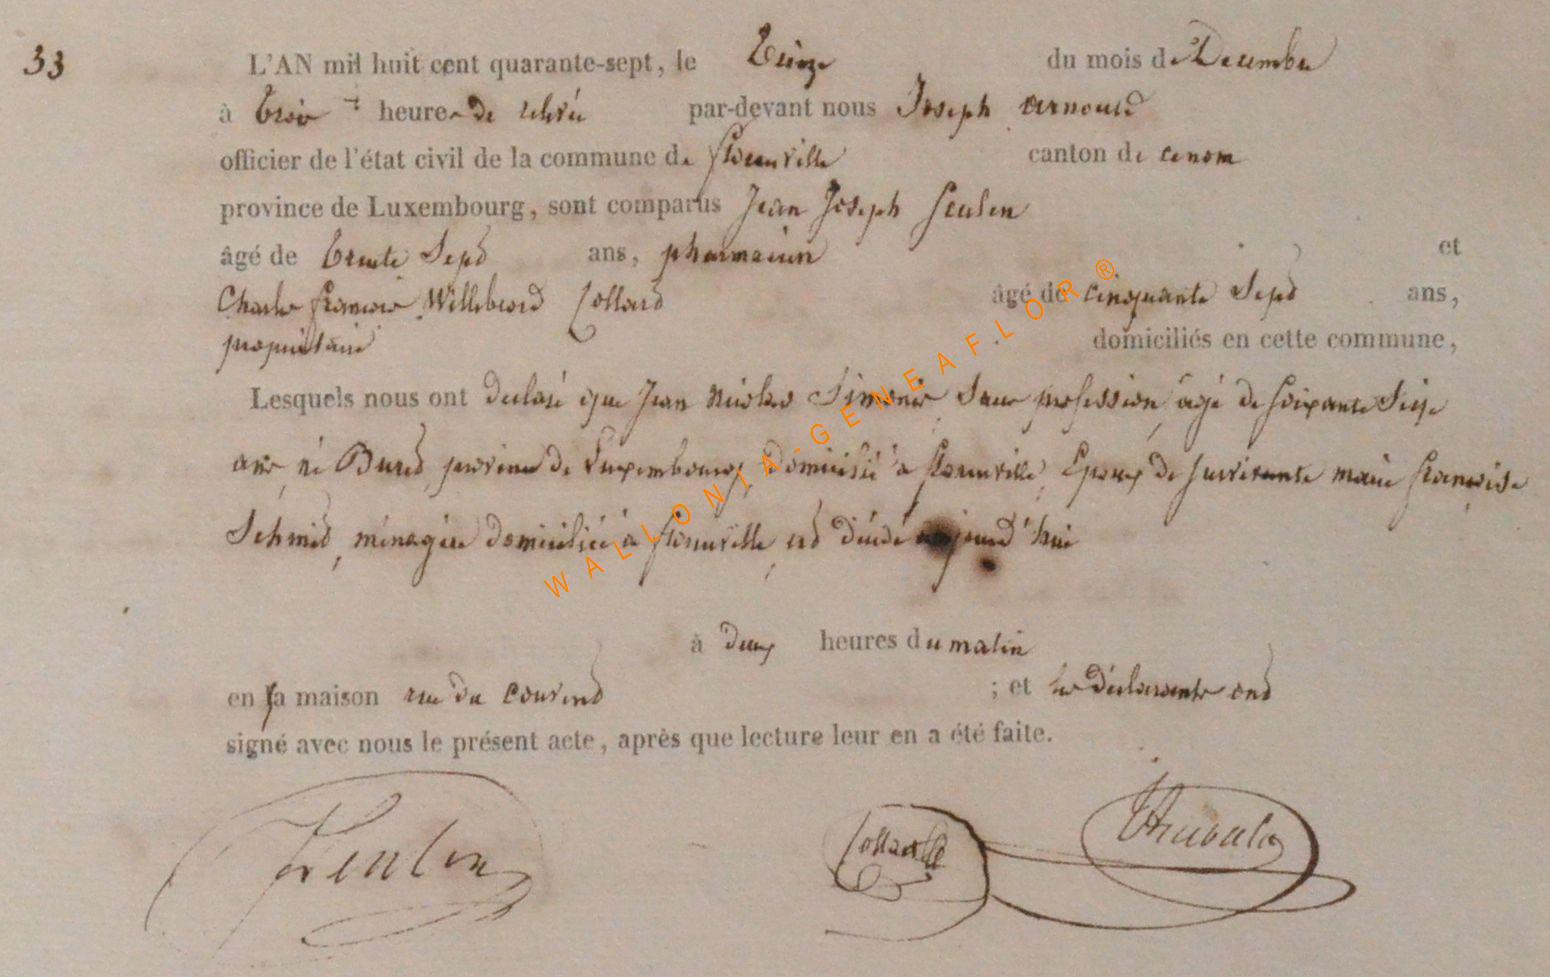 33
L'AN mil huit cent quarante-sept, le Treize du mois de Decembre
à trois heures de relevée par-devant nous Joseph Arnould
officier de l'état civil de la commune de florenville canton de idem
province de Luxembourg, sont comparus Jean Joseph
âgé de trente Sept ans, pharmacien et
Charles françois Willebrord Collard âgé de cinquante Sept ans,
propriétaire domiciliés en cette commune,
Lesquels nous ont declaré que Jean Nicolas Simonis Sans profession, âgé de soixante Seize
ans, né Bured, province de Luxembourg, domicilié à florenville, Epoux de survivante marie françoise
Schmid, ménagère domiciliée à florenville, est décédé aujourd'hui
à deux heures du matin
en sa maison rue du couvent ; et les déclarants ont
signé avec nous le présent acte, après que lecture leur en a été faite.
Collard
WALLONIA-GENEAFLOR®